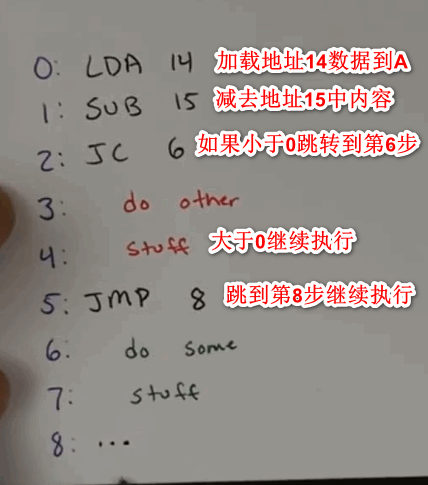 0: LDA 14 加载地址14数据到A
1: SUB 15 减去地址15中内容
2: JC 6 如果小于0跳转到第6步
3: do other
4: stuff 大于0继续执行
5: JMP 8 跳到第8步继续执行
6: do some
7: stuff
8: ...